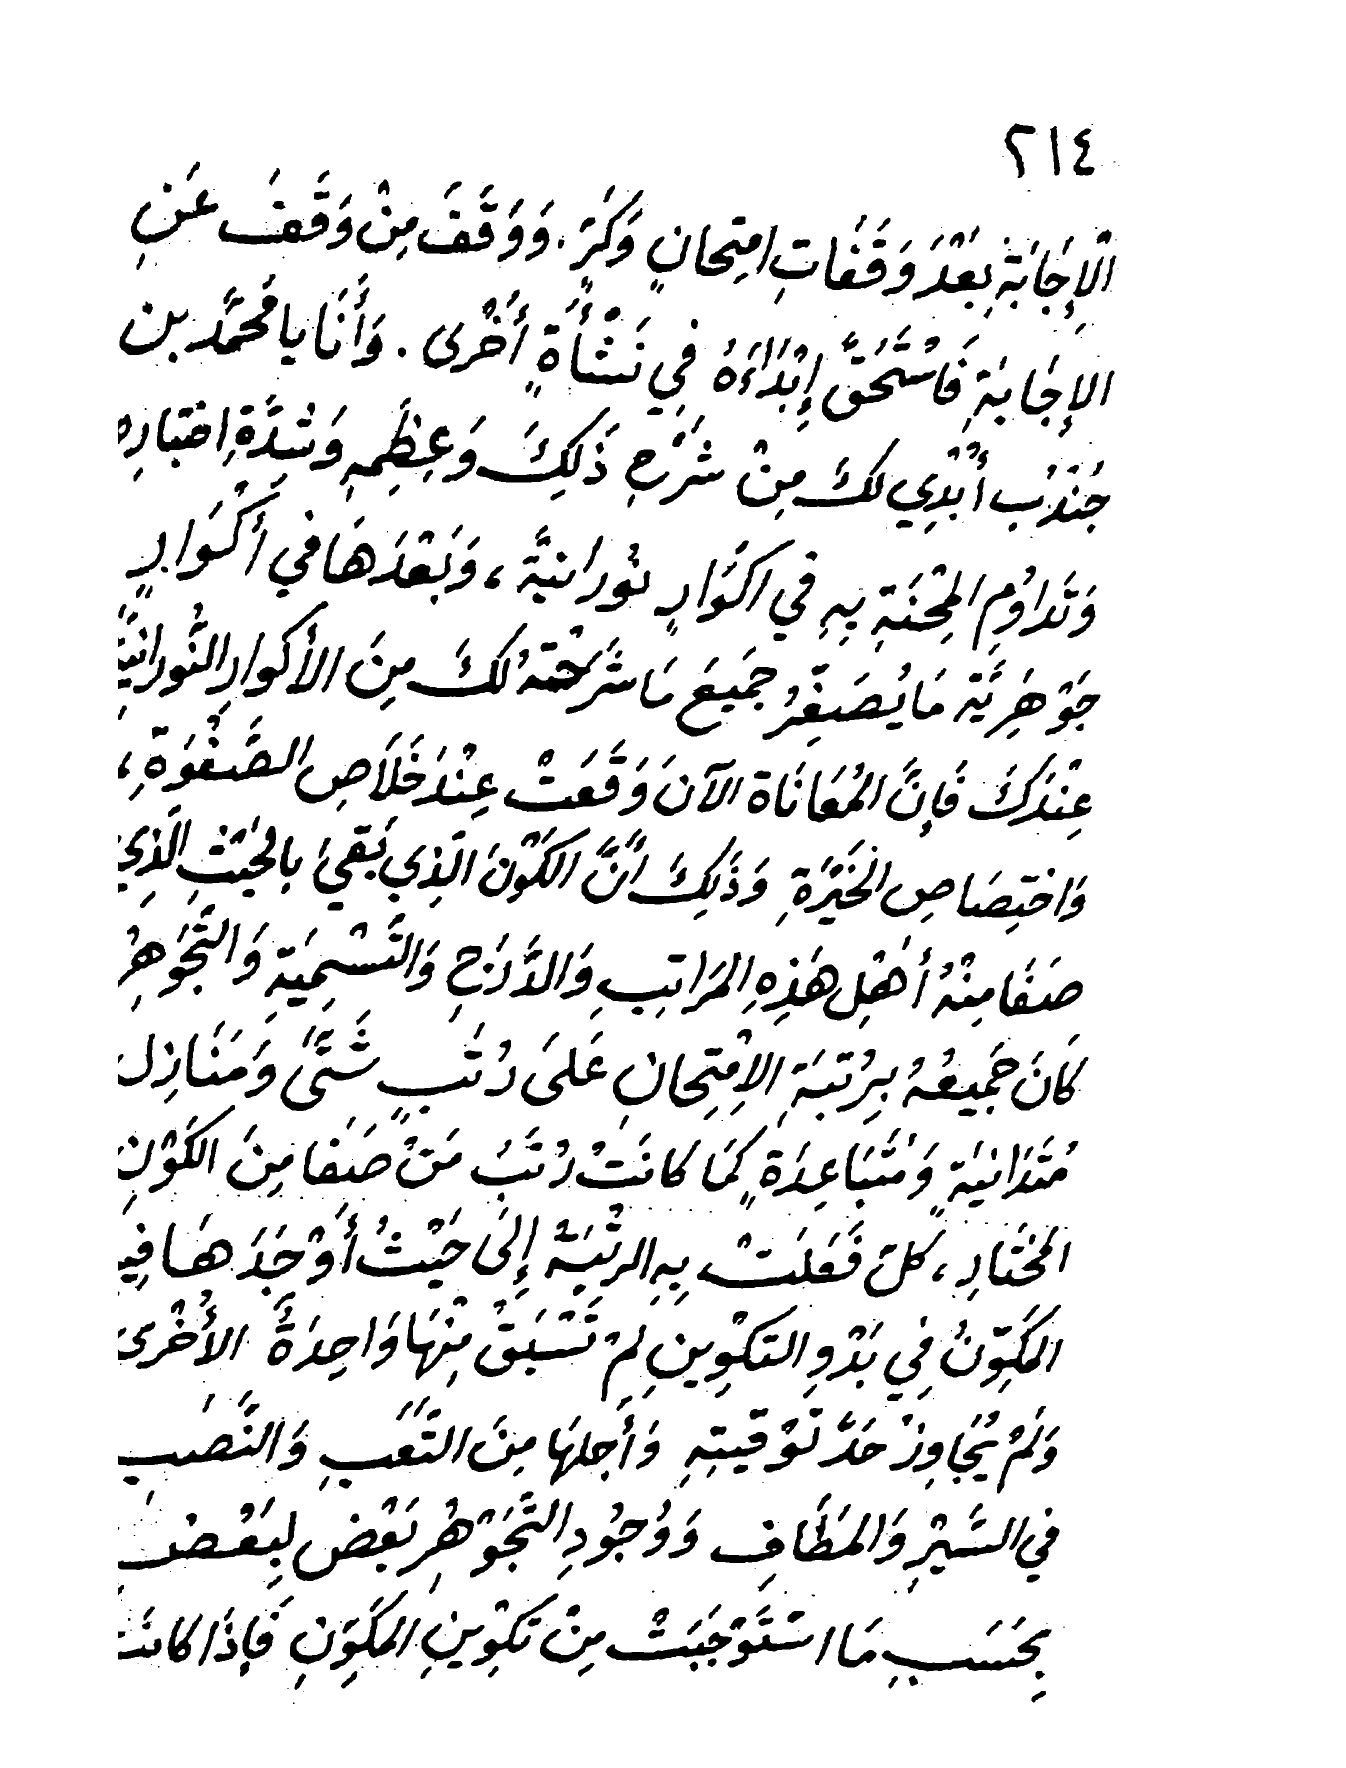 ٢١٤
الْإِجَابَةِ بَعْدَ وَقَفَاتِ امتِحانٍ وَكَرٍّ. وَوَقَّفَ مِنْ وَقَّفَ عَنِ
الإِجَابَةِ فَاسْتَحَقَّ إِبْدَاءَهُ فِي نَشْأَةٍ أُخْرى. وَأَنَا يا مُحَمَّد بن
جُنْدُب أُبْدِي لكَ مِنْ شَرْحِ ذَلِكَ وَعِظَمِهِ وَشِدَّةِ اختبارِهِ
وَتَداوُمِ المِحْنَةِ بِهِ في اكوَارٍ نُورانيَّة، وَبَعْدَهَا في أكْوَارٍ
جَوْهَرِيَّة مَا يُصَغِّرُ جَمِيعَ مَا شَرَحْتهُ لكَ مِنَ الأكوارِ النُّورانيَّةِ
عِنْدَكَ فَإِنَّ المُعَانَاة الآنَ وَقَعَتْ عِنْدَ خَلَاصِ الصَّفْوَةِ،
وَاختِصَاصِ الخَيْرَةِ وَذَلِكَ أنَّ الكَوْنَ الَّذِي بَقيَ بالحَيْثِ الَّذِي
صَفَا مِنْهُ أهْلِ هَذِهِ المَرَاتبِ وَالدَّرَجِ وَالتَّسْمِيَةِ وَالتَّجَوْهُرِ
كَانَ جَمِيعُهُ بِرُتبَةِ الإِمْتِحانِ عَلىَ رُتَبٍ شَتَّىَ وَمَنَازِل
مُتَدَانيَةٍ وَمُتَبَاعِدَةٍ كَمَا كانَتْ رُتَبُ مَنْ صَفَا مِنَ الكَوْنِ
المختَارِ، كلّ فَعَلَتْ بِهِ الرتْبَةُ إِلىَ حَيْثُ أَوْجَدَهَا فِيهِ
المكَوِّنُ فِي بَدْوِ التكْوِينِ لَمْ تَسْبَقْ مِنْهَا وَاحِدَةٌ الأُخْرىَ
وَلَمْ يُجَاوِزْ حَدَّ تَوْقيتِهِ وَأَجلهَا مِنَ التَّعَبِ وَالنَّصَبِ
في السَّيْرِ وَالمَطَافِ وَوُجُودِ التَّجَوْهُرِ بَعْض لِبَعْضٍ
بِحَسَبِ مَا اسْتَوْجَبَتْ مِنْ تكْوِينِ المكَوِّنِ فَإِذَا كانَت